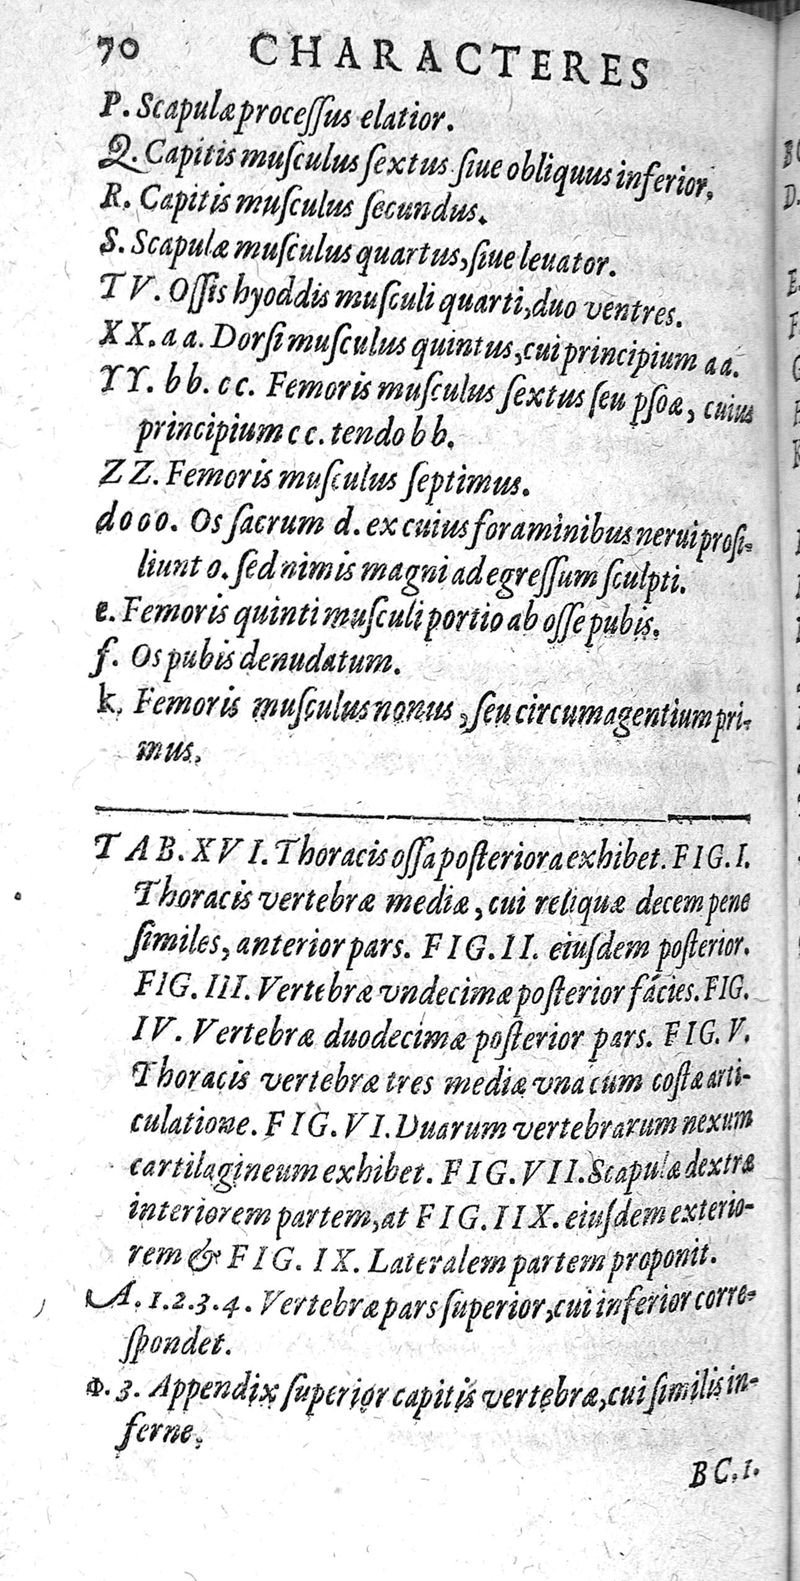 70 CHARACTERES
P. Scapulæ proceſſus elatior.
Q. Capitis muſculus ſextus ſiue obliquus inferior.
R. Capitis muſculus ſecundus.
S. Scapulæ muſculus quartus, ſiue leuator.
TV. Oſſis hyoddis muſculi quarti, duo ventres.
XX. aa. Dorſi muſculus quintus, cui principium aa.
YY. bb. cc. Femoris muſculus ſextus ſeu pſoæ, cuius
principium cc. tendo bb.
ZZ. Femoris muſculus ſeptimus.
dooo. Os ſacrum d. ex cuius foraminibus nerui proſi-
liunt o. ſed nimis magni ad egreſſum ſculpti.
e. Femoris quinti muſculi portio ab oſſe pubis.
f. Os pubis denudatum.
k. Femoris muſculus nonus, ſeu circumagentium pri-
mus.
TAB. XVI. Thoracis oſſa poſteriora exhibet. FIG. I.
Thoracis vertebræ mediæ, cui reliquæ decem pene
ſimiles, anterior pars. FIG. II. eiuſdem poſterior.
FIG. III. Vertebræ vndecimæ poſterior facies. FIG.
IV. Vertebræ duodecimæ poſterior pars. FIG. V.
Thoracis vertebræ tres mediæ vna cum coſtæ arti-
culatione. FIG. VI. Duarum vertebrarum nexum
cartilagineum exhibet. FIG. VII. Scapulæ dextræ
interiorem partem, at FIG. IIX. eiuſdem exterio-
rem & FIG. IX. Lateralem partem proponit.
A. 1. 2. 3. 4. Vertebræ pars ſuperior, cui inferior corre-
ſpondet.
Φ. 3. Appendix ſuperior capitis vertebræ, cui ſimilis in-
ferne.
BC. 1.